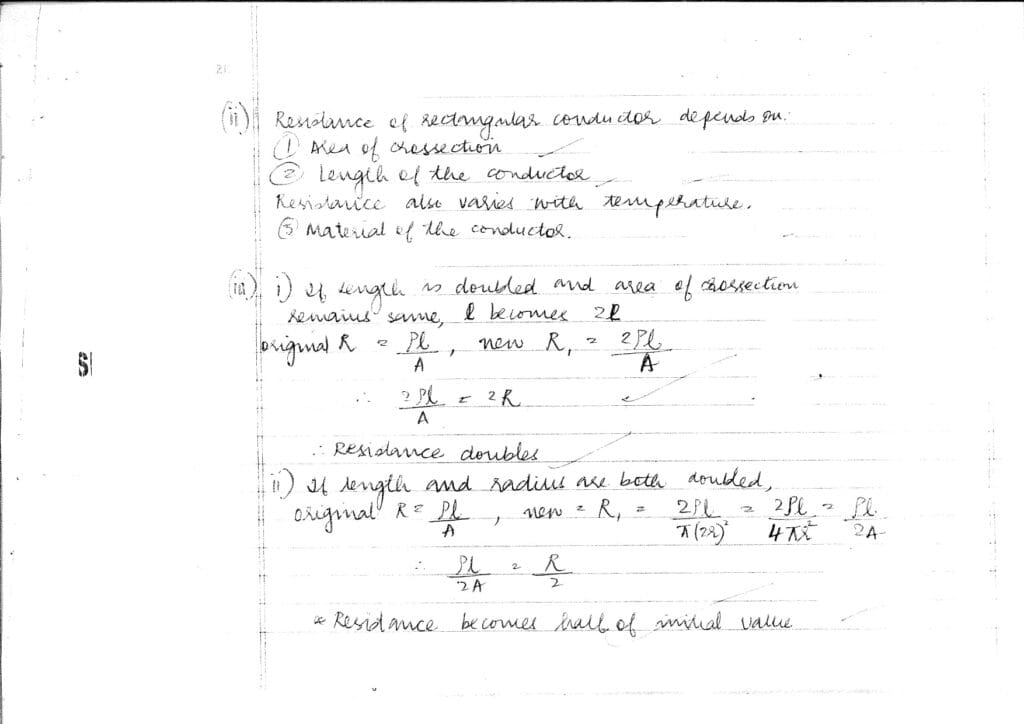 21
(ii) Resistance of rectangular conductor depends on:
① Area of crossection
② Length of the conductor
Resistance also varies with temperature.
③ Material of the conductor.
(iii) i) If length is doubled and area of crossection
remains same, l becomes 2l
original R = ρl/A , new R₁ = 2ρl/A
∴ 2ρl/A = 2R
∴ Resistance doubles
ii) If length and radius are both doubled,
original R = ρl/A , new = R₁ = 2ρl/π(2r)² = 2ρl/4πr² = ρl/2A
∴ ρl/2A = R/2
∴ Resistance becomes half of initial value